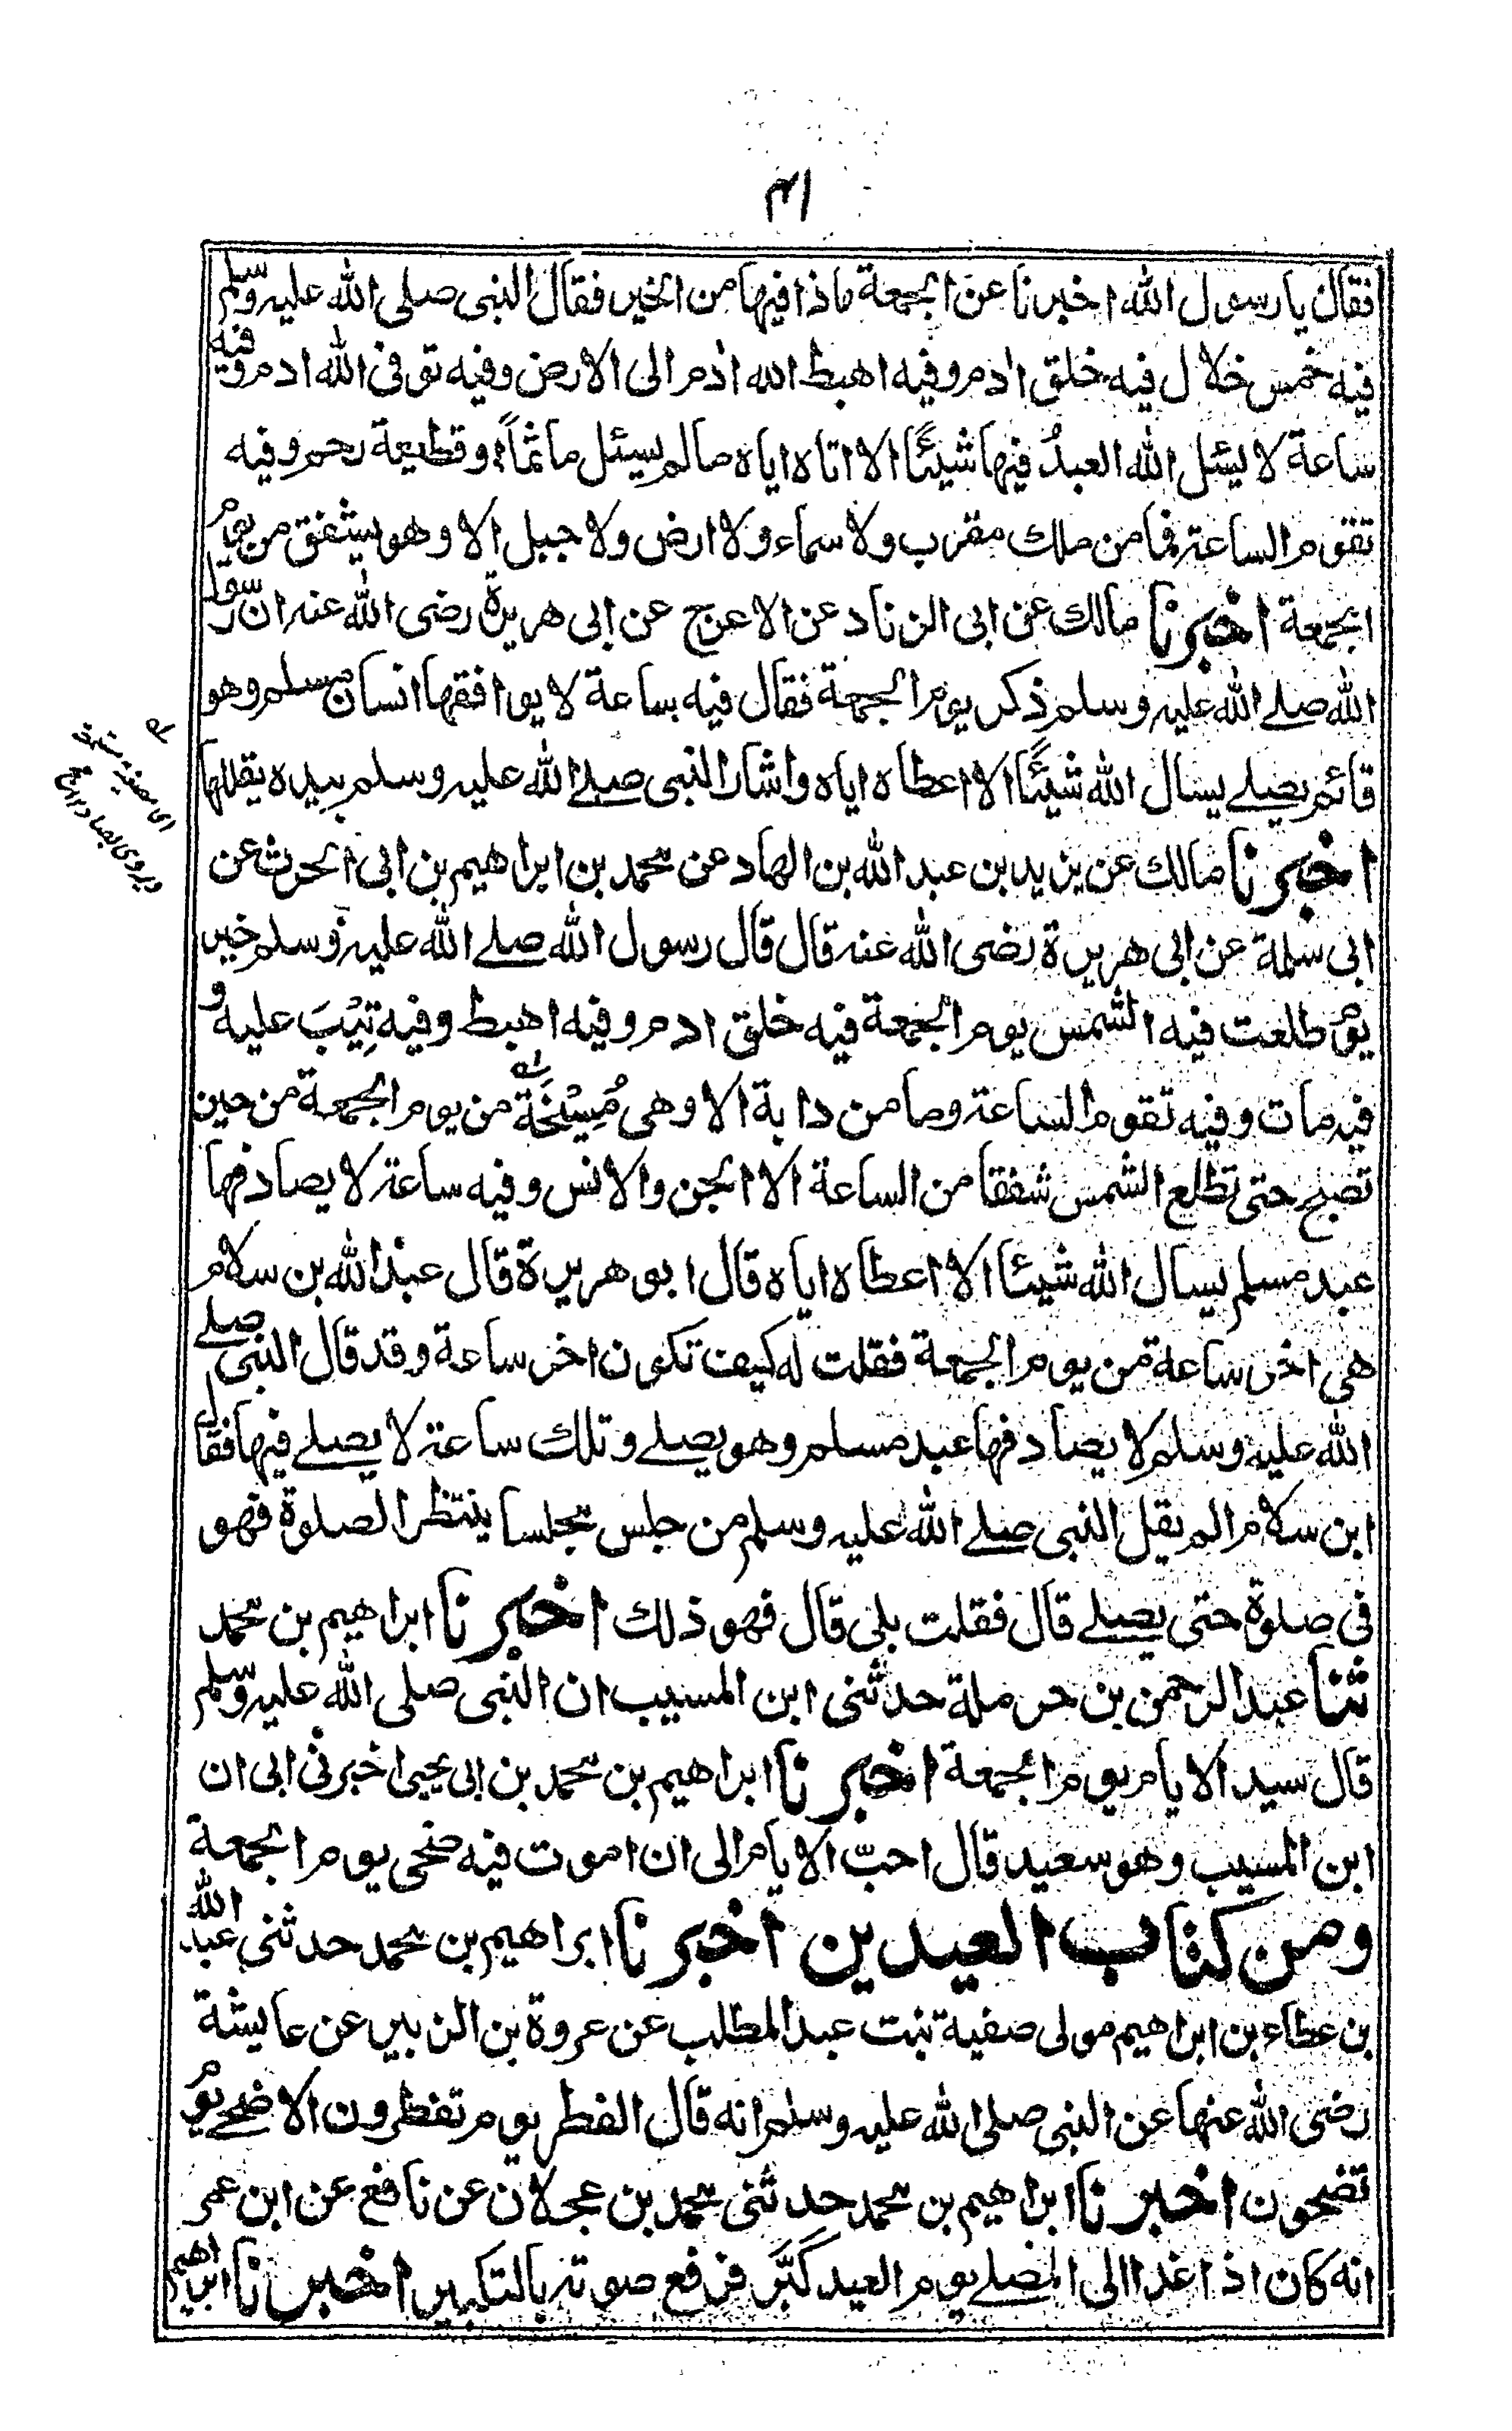 ٤١
فقال يا رسول الله اخبرنا عن الجمعة ماذا فيها من الخير فقال النبى صلى الله عليه وسلم
فيه خمس خلال فيه خلق ادم وفيه اهبط الله ادم الى الارض وفيه توفى الله ادم وفيه
ساعة لا يسئل الله العبدُ فيها شيئًا الا اتاه اياه مالم يسئل ماثماً او قطيعة رحم وفيه
تقوم الساعة فما من ملك مقرب ولا سماء ولا ارض ولا جبل الا وهو يشفق من يوم
الجمعة اخبرنا مالك عن ابى الزناد عن الاعرج عن ابى هريرة رضى الله عنه ان رسول
الله صلے الله عليه وسلم ذكر يوم الجمعة فقال فيه ساعة لا يوافقها انسان مسلم وهو
قائم يصلے يسال الله شيئًا الا اعطاه اياه واشار النبى صلے الله عليه وسلم بيده يقللها
اخبرنا مالك عن يزيد بن عبد الله بن الهاد عن محمد بن ابراهيم بن ابى الحرث عن
ابى سلمة عن ابى هريرة رضى الله عنه قال قال رسول الله صلے الله عليه وسلم خير
يوم طلعت فيه الشمس يوم الجمعة فيه خلق ادم وفيه اهبط وفيه تِيْبَ عليه و
فيه مات وفيه تقوم الساعة وما من دابة الا وهى مُسِيْخَة من يوم الجمعة من حين
تصبح حتى تطلع الشمس شفقا من الساعة الا الجن والانس وفيه ساعة لا يصادفها
عبد مسلم يسال الله شيئا الا اعطاه اياه قال ابو هريرة قال عبد الله بن سلام
هى اخر ساعة من يوم الجمعة فقلت له كيف تكون اخر ساعة وقد قال النبى صلے
الله عليه وسلم لا يصادفها عبد مسلم وهو يصلے وتلك ساعة لا يصلے فيها فقال
ابن سلام الم يقل النبى صلے الله عليه وسلم من جلس مجلسا ينتظر الصلوة فهو
فى صلوة حتى يصلے قال فقلت بلى قال فهو ذلك اخبرنا ابراهيم بن محمد
ثنا عبد الرحمن بن حرملة حدثنى ابن المسيب ان النبى صلى الله عليه وسلم
قال سيد الايام يوم الجمعة اخبرنا ابراهيم بن محمد بن ابى يحيى اخبرنى ابى ان
ابن المسيب وهو سعيد قال احبّ الايام الى ان اموت فيه ضحى يوم الجمعة
ومن كتاب العيدين اخبرنا ابراهيم بن محمد حدثنى عبد الله
بن عطاء بن ابراهيم مولى صفية بنت عبد المطلب عن عروة بن الزبير عن عايشة
رضى الله عنها عن النبى صلى الله عليه وسلم انه قال الفطر يوم تفطرون الاضحے يوم
تضحون اخبرنا ابراهيم بن محمد حدثنى محمد بن عجلان عن نافع عن ابن عمر
انه كان اذا غدا الى المصلے يوم العيد كَبَّر فرفع صوته بالتكبير اخبرنا ابراهيم